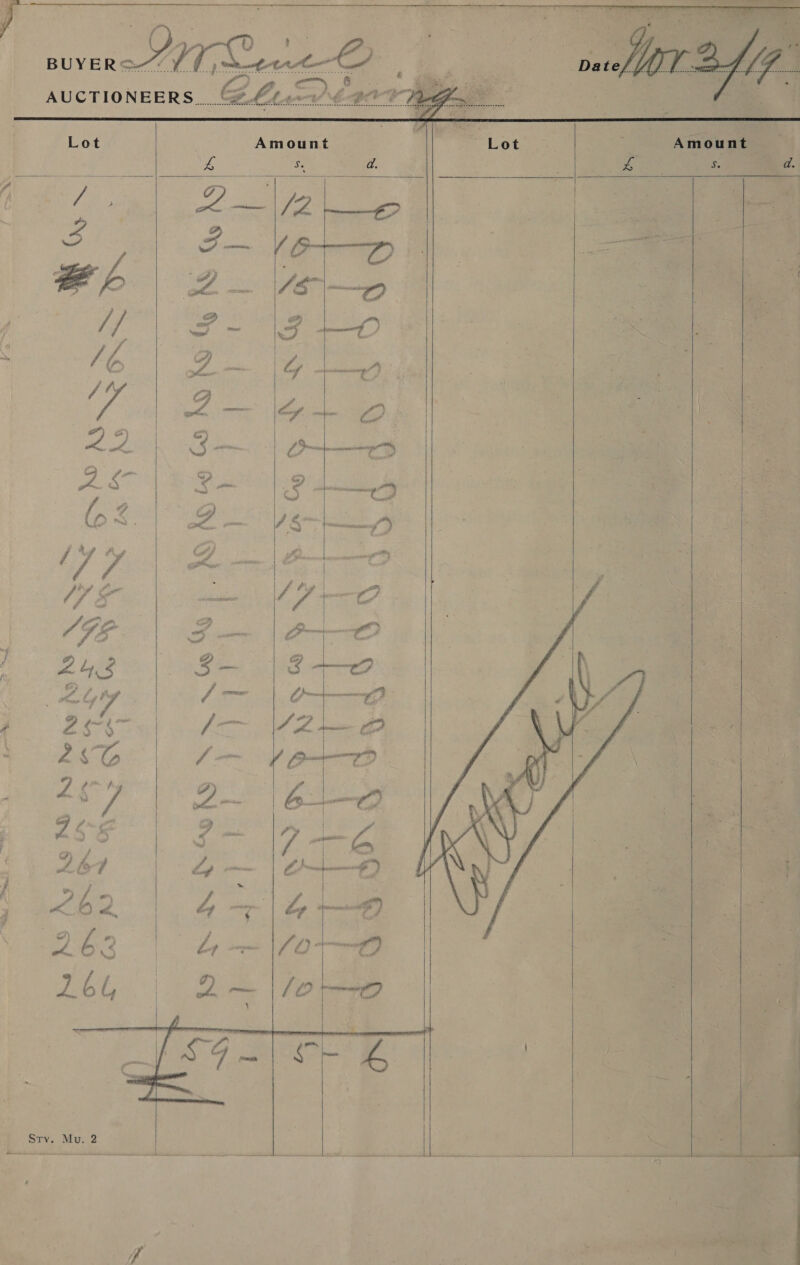 BUYER
Date
AUCTIONEERS
Lot Amount Lot Amount
£ s. d. £ s. d.
1 2 - 12 - 0
3 3 - 10 - 0
6 2 - 15 - 0
11 3 - 3 - 0
16 2 - 4 - 0
17 2 - 4 - 0
22 3 - 0 - 0
25 2 - 3 - 0
63 2 - 15 - 0
177 2 - 0 - 0
178 - 17 - 0
198 3 - 0 - 0
243 3 - 3 - 0
247 1 - 0 - 0
255 1 - 12 - 0
256 1 - 10 - 0
257 2 - 6 - 0
258 2 - 7 - 6
261 4 - 0 - 0
262 4 - 4 - 0
263 4 - 10 - 0
264 2 - 10 - 0
£ 59 - 5 - 6
Sty. Mu. 2